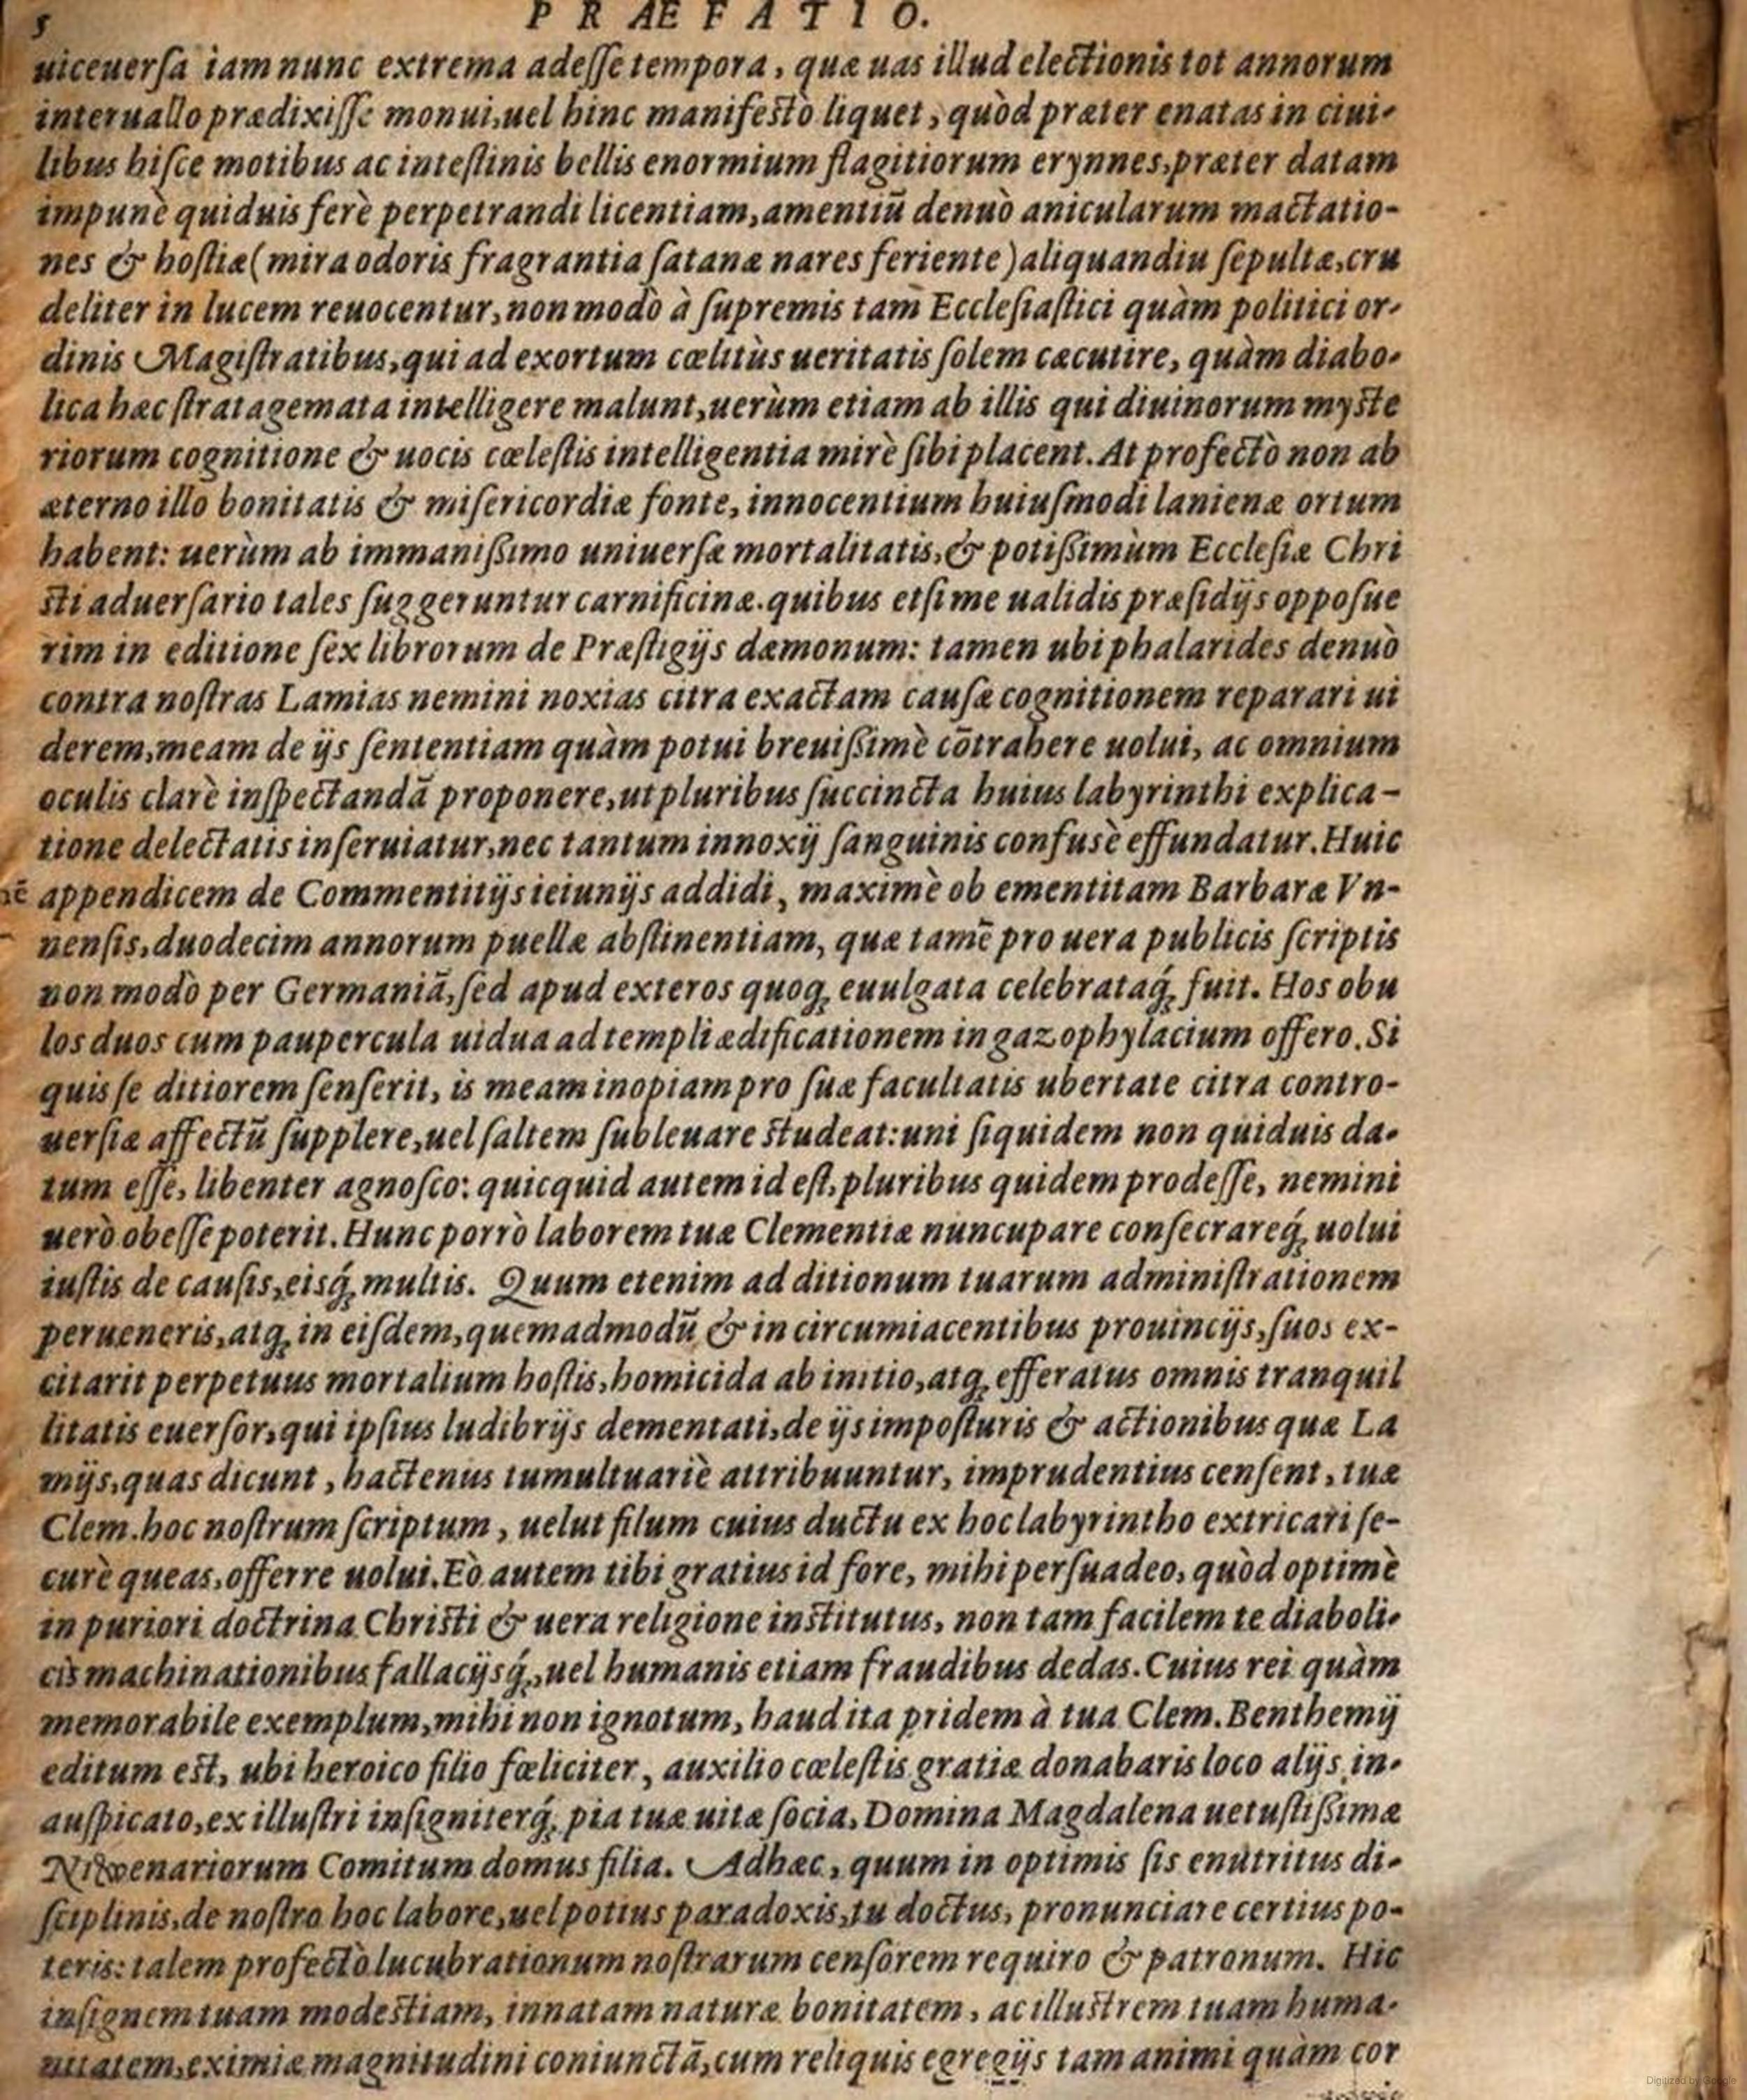 5 PRAEFATIO.
uiceuerſa iam nunc extrema adeſſe tempora, quæ uas illud electionis tot annorum
interuallo prædixiſſe monui, uel hinc manifestò liquet, quòd præter enatas in ciui-
libus hiſce motibus ac inteſtinis bellis enormium flagitiorum erynnes, præter datam
impunè quiduis ferè perpetrandi licentiam, amentiũ denuò anicularum mactatio-
nes & hoſtiæ (mira odoris fragrantia ſatanæ nares feriente) aliquandiu ſepultæ, cru
deliter in lucem reuocentur, non modò à ſupremis tam Eccleſiaſtici quàm politici or-
dinis Magiſtratibus, qui ad exortum cœlitùs ueritatis ſolem cæcutire, quàm diabo-
lica hæc ſtratagemata intelligere malunt, uerùm etiam ab illis qui diuinorum myste
riorum cognitione & uocis cœleſtis intelligentia mirè ſibi placent. At profectò non ab
æterno illo bonitatis & miſericordiæ fonte, innocentium huiuſmodi lanienæ ortum
habent: uerùm ab immanißimo uniuerſæ mortalitatis, & potißimùm Eccleſiæ Chri
sti aduerſario tales ſuggeruntur carnificinæ. quibus etſi me ualidis præſidijs oppoſue
rim in editione ſex librorum de Præſtigijs dæmonum: tamen ubi phalarides denuò
contra noſtras Lamias nemini noxias citra exactam cauſæ cognitionem reparari ui
derem, meam de ijs ſententiam quàm potui breuißimè cõtrahere uolui, ac omnium
oculis clarè inſpectandã proponere, ut pluribus ſuccincta huius labyrinthi explica-
tione delectatis inſeruiatur, nec tantum innoxij ſanguinis confusè effundatur. Huic
appendicem de Commentitijs ieiunijs addidi, maximè ob ementitam Barbaræ Vn-
nenſis, duodecim annorum puellæ abſtinentiam, quæ tamẽ pro uera publicis ſcriptis
non modò per Germaniã, ſed apud exteros quoq; euulgata celebrataq́; fuit. Hos obu
los duos cum paupercula uidua ad templi ædificationem in gazophylacium offero. Si
quis ſe ditiorem ſenſerit, is meam inopiam pro ſuæ facultatis ubertate citra contro-
uerſiæ affectũ ſupplere, uel ſaltem ſubleuare studeat: uni ſiquidem non quiduis da-
tum eſſe, libenter agnoſco: quicquid autem id eſt, pluribus quidem prodeſſe, nemini
uerò obeſſe poterit. Hunc porrò laborem tuæ Clementiæ nuncupare conſecrareq́; uolui
iuſtis de cauſis, eisq́; multis. Quum etenim ad ditionum tuarum adminiſtrationem
perueneris, atq; in eiſdem, quemadmodũ & in circumiacentibus prouincijs, ſuos ex-
citarit perpetuus mortalium hoſtis, homicida ab initio, atq; efferatus omnis tranquil
litatis euerſor, qui ipſius ludibrijs dementati, de ijs impoſturis & actionibus quæ La
mijs, quas dicunt, hactenus tumultuariè attribuuntur, imprudentius cenſent, tuæ
Clem. hoc noſtrum ſcriptum, uelut filum cuius ductu ex hoc labyrintho extricari ſe-
curè queas, offerre uolui. Eò autem tibi gratius id fore, mihi perſuadeo, quòd optimè
in puriori doctrina Christi & uera religione institutus, non tam facilem te diaboli-
cis machinationibus fallacijsq́;, uel humanis etiam fraudibus dedas. Cuius rei quàm
memorabile exemplum, mihi non ignotum, haud ita pridem à tua Clem. Benthemij
editum est, ubi heroico filio fœliciter, auxilio cœleſtis gratiæ donabaris loco alijs in-
auſpicato, ex illuſtri inſigniterq́; pia tuæ uitæ ſocia, Domina Magdalena uetuſtißimæ
Niwenariorum Comitum domus filia. Adhæc, quum in optimis ſis enutritus di-
ſciplinis, de noſtro hoc labore, uel potius paradoxis, tu doctus, pronunciare certius po-
teris: talem profectò lucubrationum noſtrarum cenſorem requiro & patronum. Hic
inſignem tuam modestiam, innatam naturæ bonitatem, ac illustrem tuam huma-
nitatem, eximiæ magnitudini coniunctã, cum reliquis egregijs tam animi quàm cor
Digitized by Google